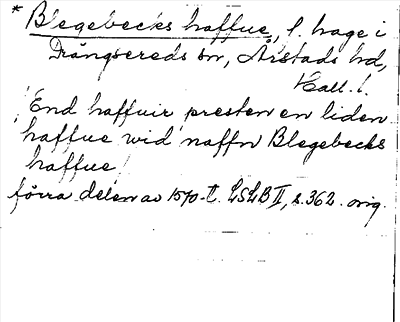 * Blegebecks haffue, f. hage i
Drängsereds sn, Årstads hd,
Hall. l.
"End haffuir presten en liden
haffue wid naffn Blegebecks
haffue"
förra delen av 1570-t. LSLB II, s. 362. orig.